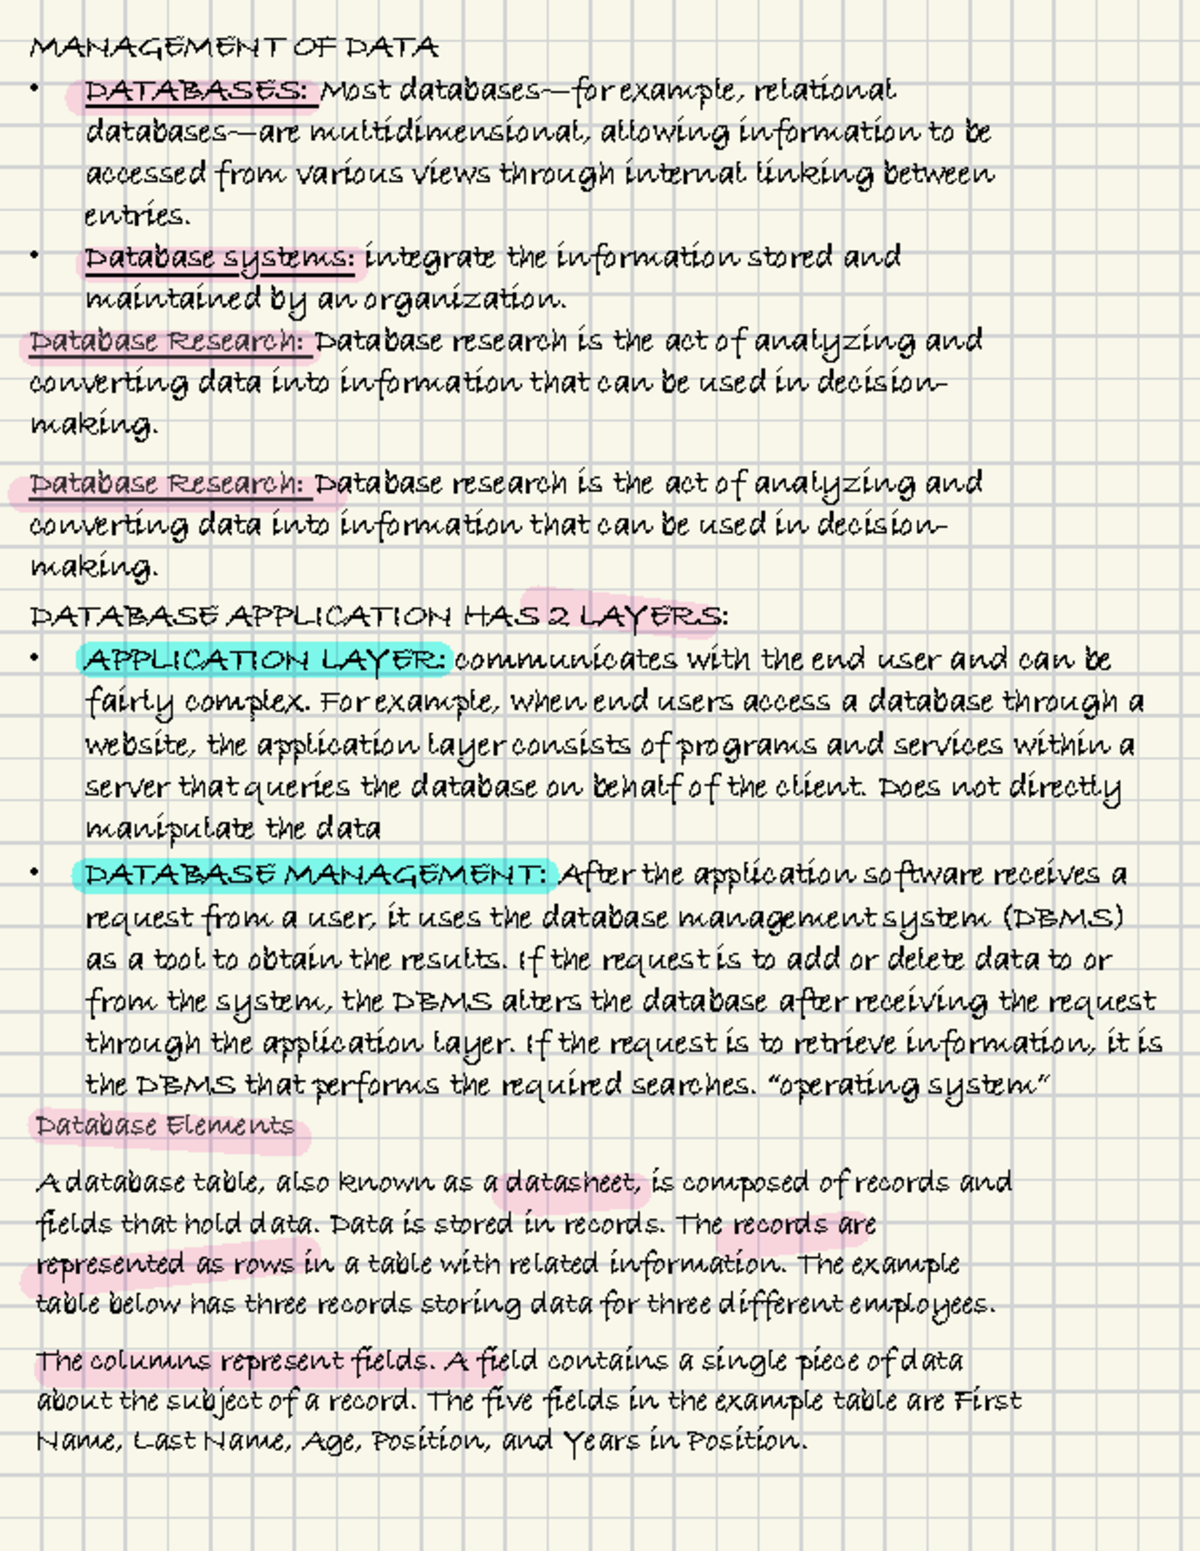 MANAGEMENT OF DATA
• DATABASES: Most databases—for example, relational
databases—are multidimensional, allowing information to be
accessed from various views through internal linking between
entries.
• Database systems: integrate the information stored and
maintained by an organization.
Database Research: Database research is the act of analyzing and
converting data into information that can be used in decision-
making.
Database Research: Database research is the act of analyzing and
converting data into information that can be used in decision-
making.
DATABASE APPLICATION HAS 2 LAYERS:
• APPLICATION LAYER: communicates with the end user and can be
fairly complex. For example, when end users access a database through a
website, the application layer consists of programs and services within a
server that queries the database on behalf of the client. Does not directly
manipulate the data
• DATABASE MANAGEMENT: After the application software receives a
request from a user, it uses the database management system (DBMS)
as a tool to obtain the results. If the request is to add or delete data to or
from the system, the DBMS alters the database after receiving the request
through the application layer. If the request is to retrieve information, it is
the DBMS that performs the required searches. “operating system”
Database Elements
A database table, also known as a datasheet, is composed of records and
fields that hold data. Data is stored in records. The records are
represented as rows in a table with related information. The example
table below has three records storing data for three different employees.
The columns represent fields. A field contains a single piece of data
about the subject of a record. The five fields in the example table are First
Name, Last Name, Age, Position, and Years in Position.